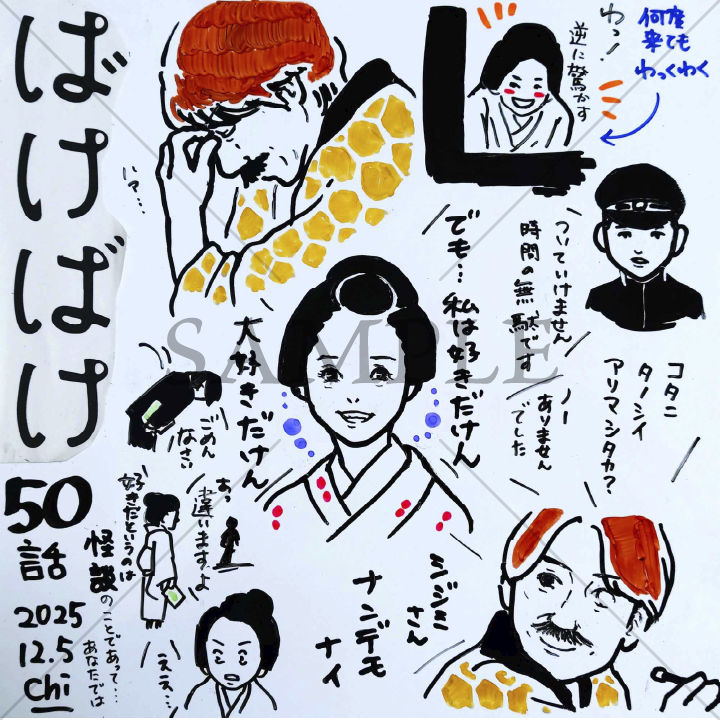 ばけばけ
50
話
2025
12.5
Chi
わっ!
逆に驚かす
何度
来ても
わっくわく
い?…
でも…私は好きだけん
大好きだけん
ついていけません
時間の無駄です
コタニ
タノシイ
アリマシタカ?
ノー
ありません
でした
ごめん
なさい
あっ
違いますよ
好きだというのは
怪談のことであって…
あなたでは
ええ…
シジミ
さん
ナンデモ
ナイ
SAMPLE